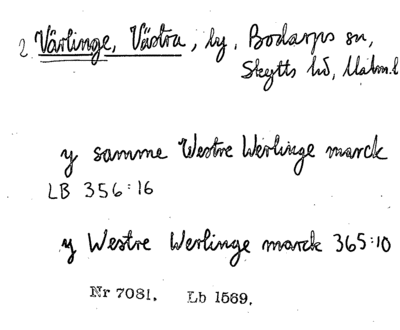 2 Värlinge, Västra, by, Bodarps sn,
Skytts hd, Malm.l
y samme Westre Werlinge marck
LB 356:16
y Westre Werlinge marck 365:10
Nr 7081. Lb 1569.